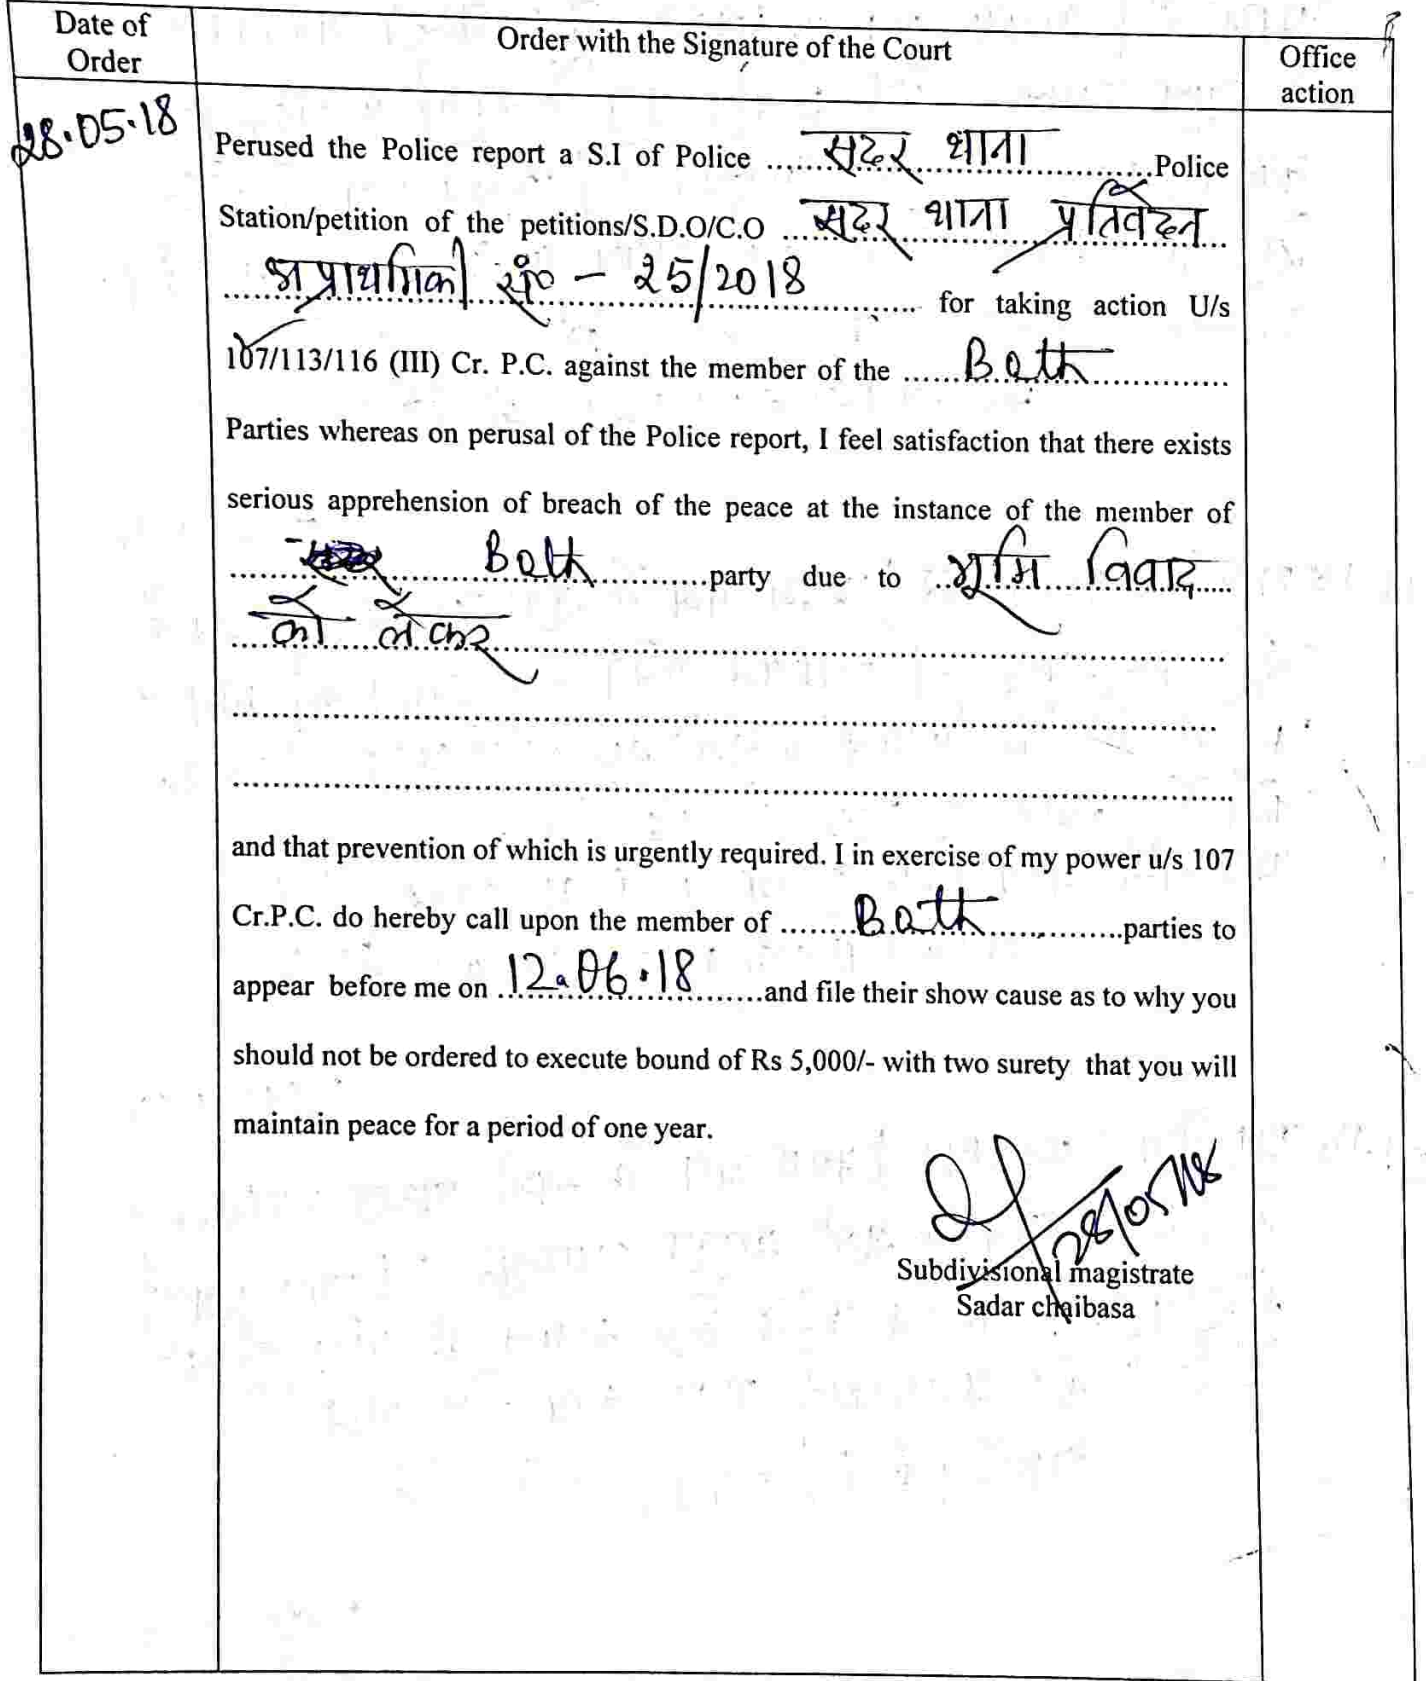 Date of Order
Order with the Signature of the Court
Office action
28.05.18
Perused the Police report a S.I of Police ...... सदर थाना ...... Police
Station/petition of the petitions/S.D.O/C.O ...... सदर थाना प्रतिवेदन ......
...... अप्राथमिकी सं० - 25/2018 ...... for taking action U/s
107/113/116 (III) Cr. P.C. against the member of the ...... Both ......
Parties whereas on perusal of the Police report, I feel satisfaction that there exists
serious apprehension of breach of the peace at the instance of the member of
...... Both ...... party due to ...... भूमि विवाद ......
...... को लेकर ......
and that prevention of which is urgently required. I in exercise of my power u/s 107
Cr.P.C. do hereby call upon the member of ...... Both ...... parties to
appear before me on ...... 12.06.18 ...... and file their show cause as to why you
should not be ordered to execute bound of Rs 5,000/- with two surety that you will
maintain peace for a period of one year.
28/05/18
Subdivisional magistrate
Sadar chaibasa